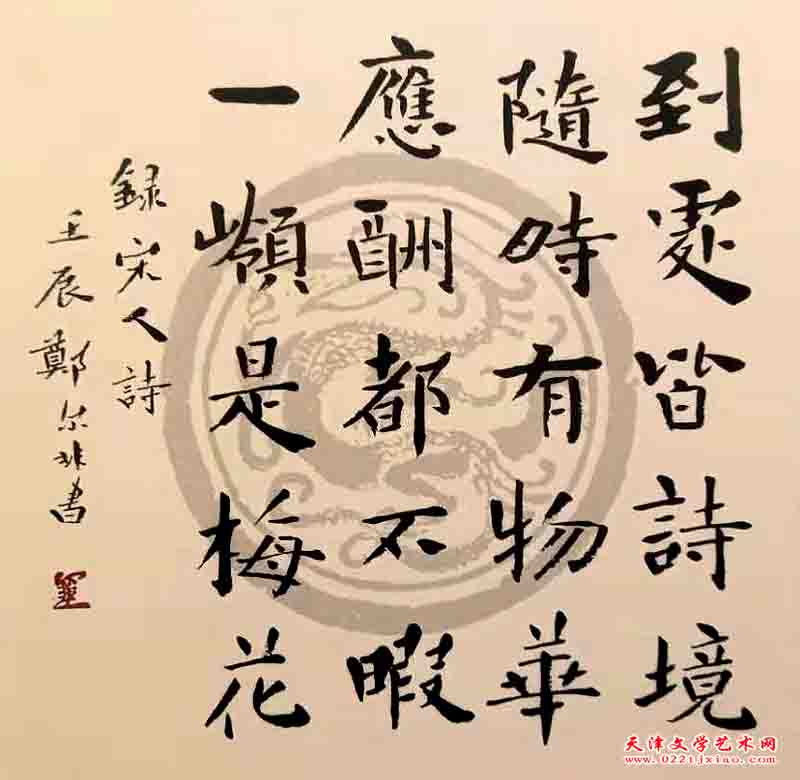 到處皆詩境
隨時有物華
應酬都不暇
一嶺是梅花
録宋人詩
壬辰鄭尔非書
天津文学艺术网
www.0221jxiao.com